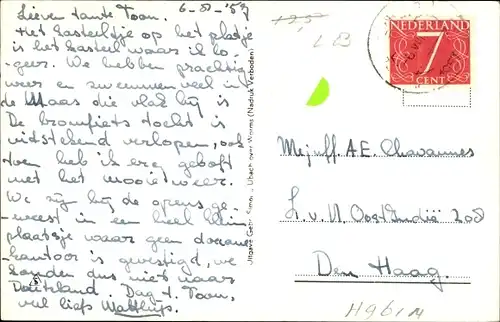 Lieven tante Toon.
6-8-'57
Het kasteeltje op het plaatje
is het kasteel waar ik lo-
geer. We hebben prachtig
weer en zwemmen veel in
de Maas die vlak bij is
De bromfiets tocht is
uitstekend verlopen, ook
toen heb ik erg geboft
met het mooie weer.
We zijn bij de grens ge-
weest in een heel klein
plaatsje waar geen douane
kantoor is gevestigd, we
konden dus niet naar
Duitsland. Dag t. Toon,
veel liefs Matthijs.
Uitgave Gebr. Simons, Ubach over Worms (Nadruk Verboden)
NEDERLAND
7
CENT
Mejuff. A.E. Chavannes
L. v. N. Oost Indië 208
Den Haag.